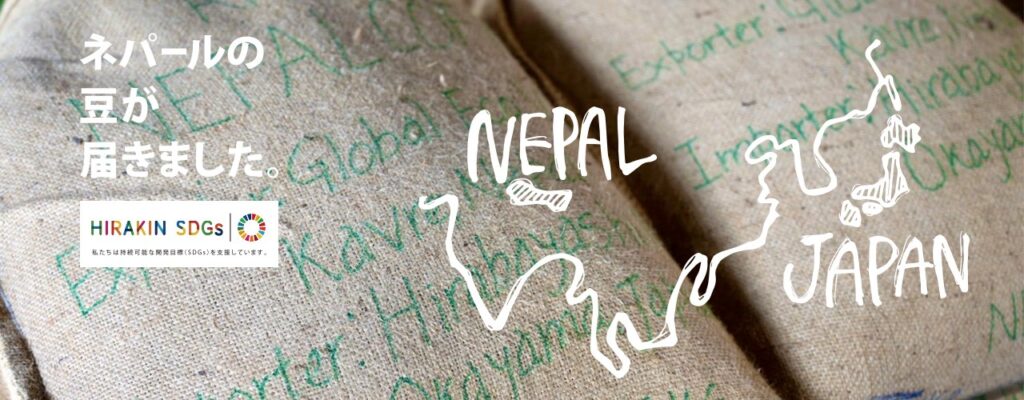 ネパールの
豆が
届きました。
HIRAKIN SDGs
私たちは持続可能な開発目標(SDGs)を支援しています。
NEPAL
JAPAN
NEPAL CO
Global Ex
Exporter: Kavre, N
Importer: Hirabayas
Okayama Ja
Exporter: Glo
Kavre, N
Importer: Hirabaya
Okayam
N